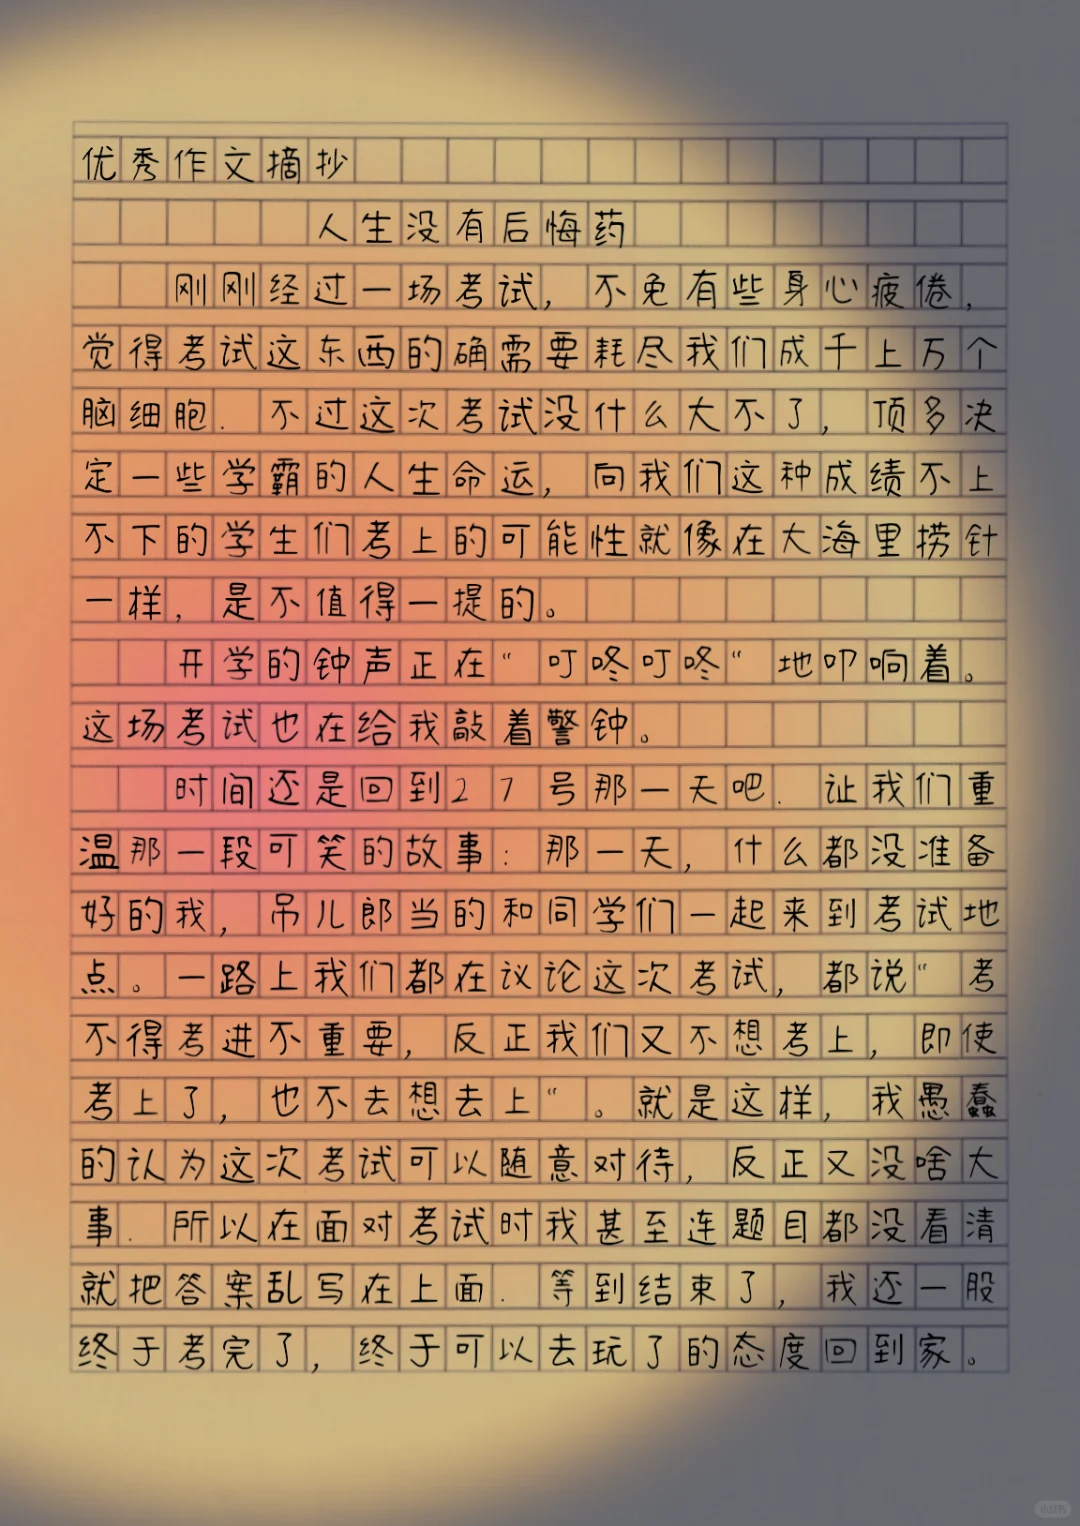 优秀作文摘抄
人生没有后悔药
刚刚经过一场考试，不免有些身心疲倦，
觉得考试这东西的确需要耗尽我们成千上万个
脑细胞．不过这次考试没什么大不了，顶多决
定一些学霸的人生命运，向我们这种成绩不上
不下的学生们考上的可能性就像在大海里捞针
一样，是不值得一提的。
开学的钟声正在“叮咚叮咚“地叩响着。
这场考试也在给我敲着警钟。
时间还是回到27号那一天吧．让我们重
温那一段可笑的故事：那一天，什么都没准备
好的我，吊儿郎当的和同学们一起来到考试地
点。一路上我们都在议论这次考试，都说“考
不得考进不重要，反正我们又不想考上，即使
考上了，也不去想去上“。就是这样，我愚蠢
的认为这次考试可以随意对待，反正又没啥大
事．所以在面对考试时我甚至连题目都没看清
就把答案乱写在上面．等到结束了，我还一股
终于考完了，终于可以去玩了的态度回到家。